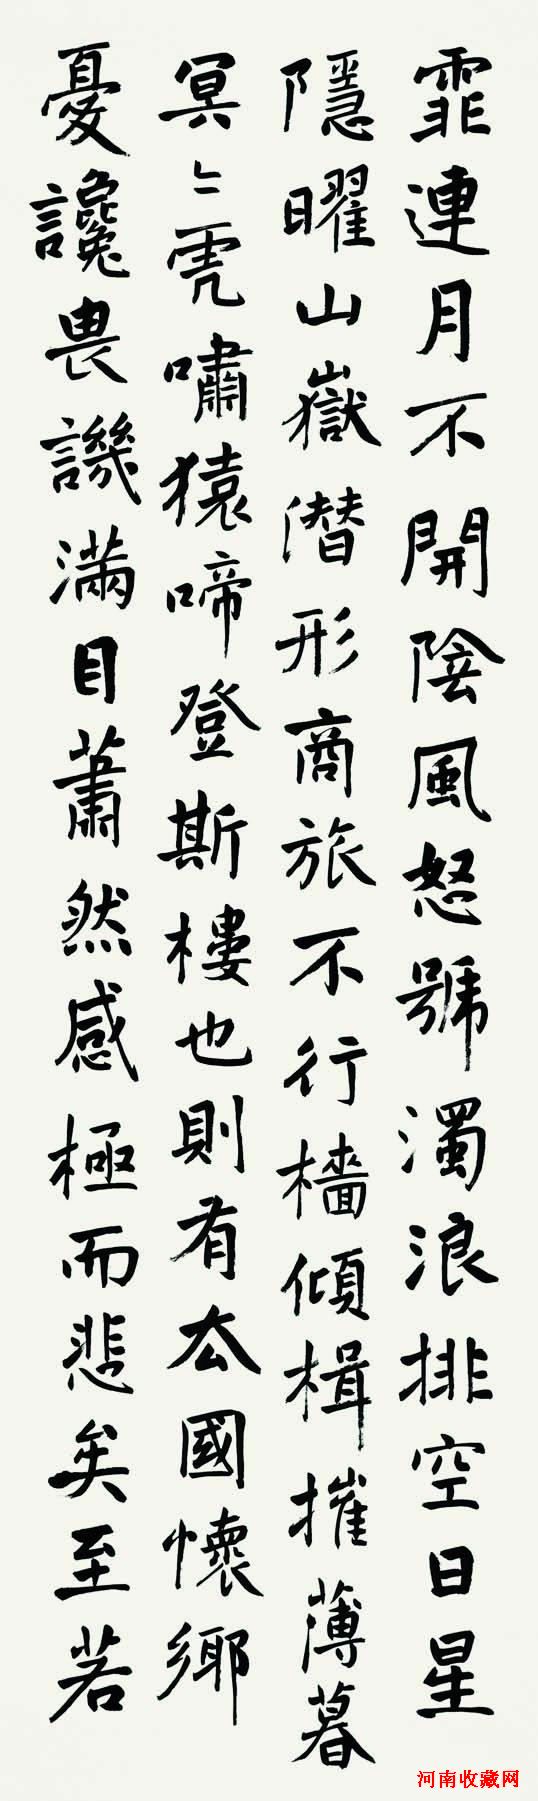 霏連月不開陰風怒號濁浪排空日星
隱曜山嶽潛形商旅不行檣傾楫摧薄暮
冥〻虎嘯猿啼登斯樓也則有去國懷鄉
憂讒畏譏滿目蕭然感極而悲矣至若
河南收藏网